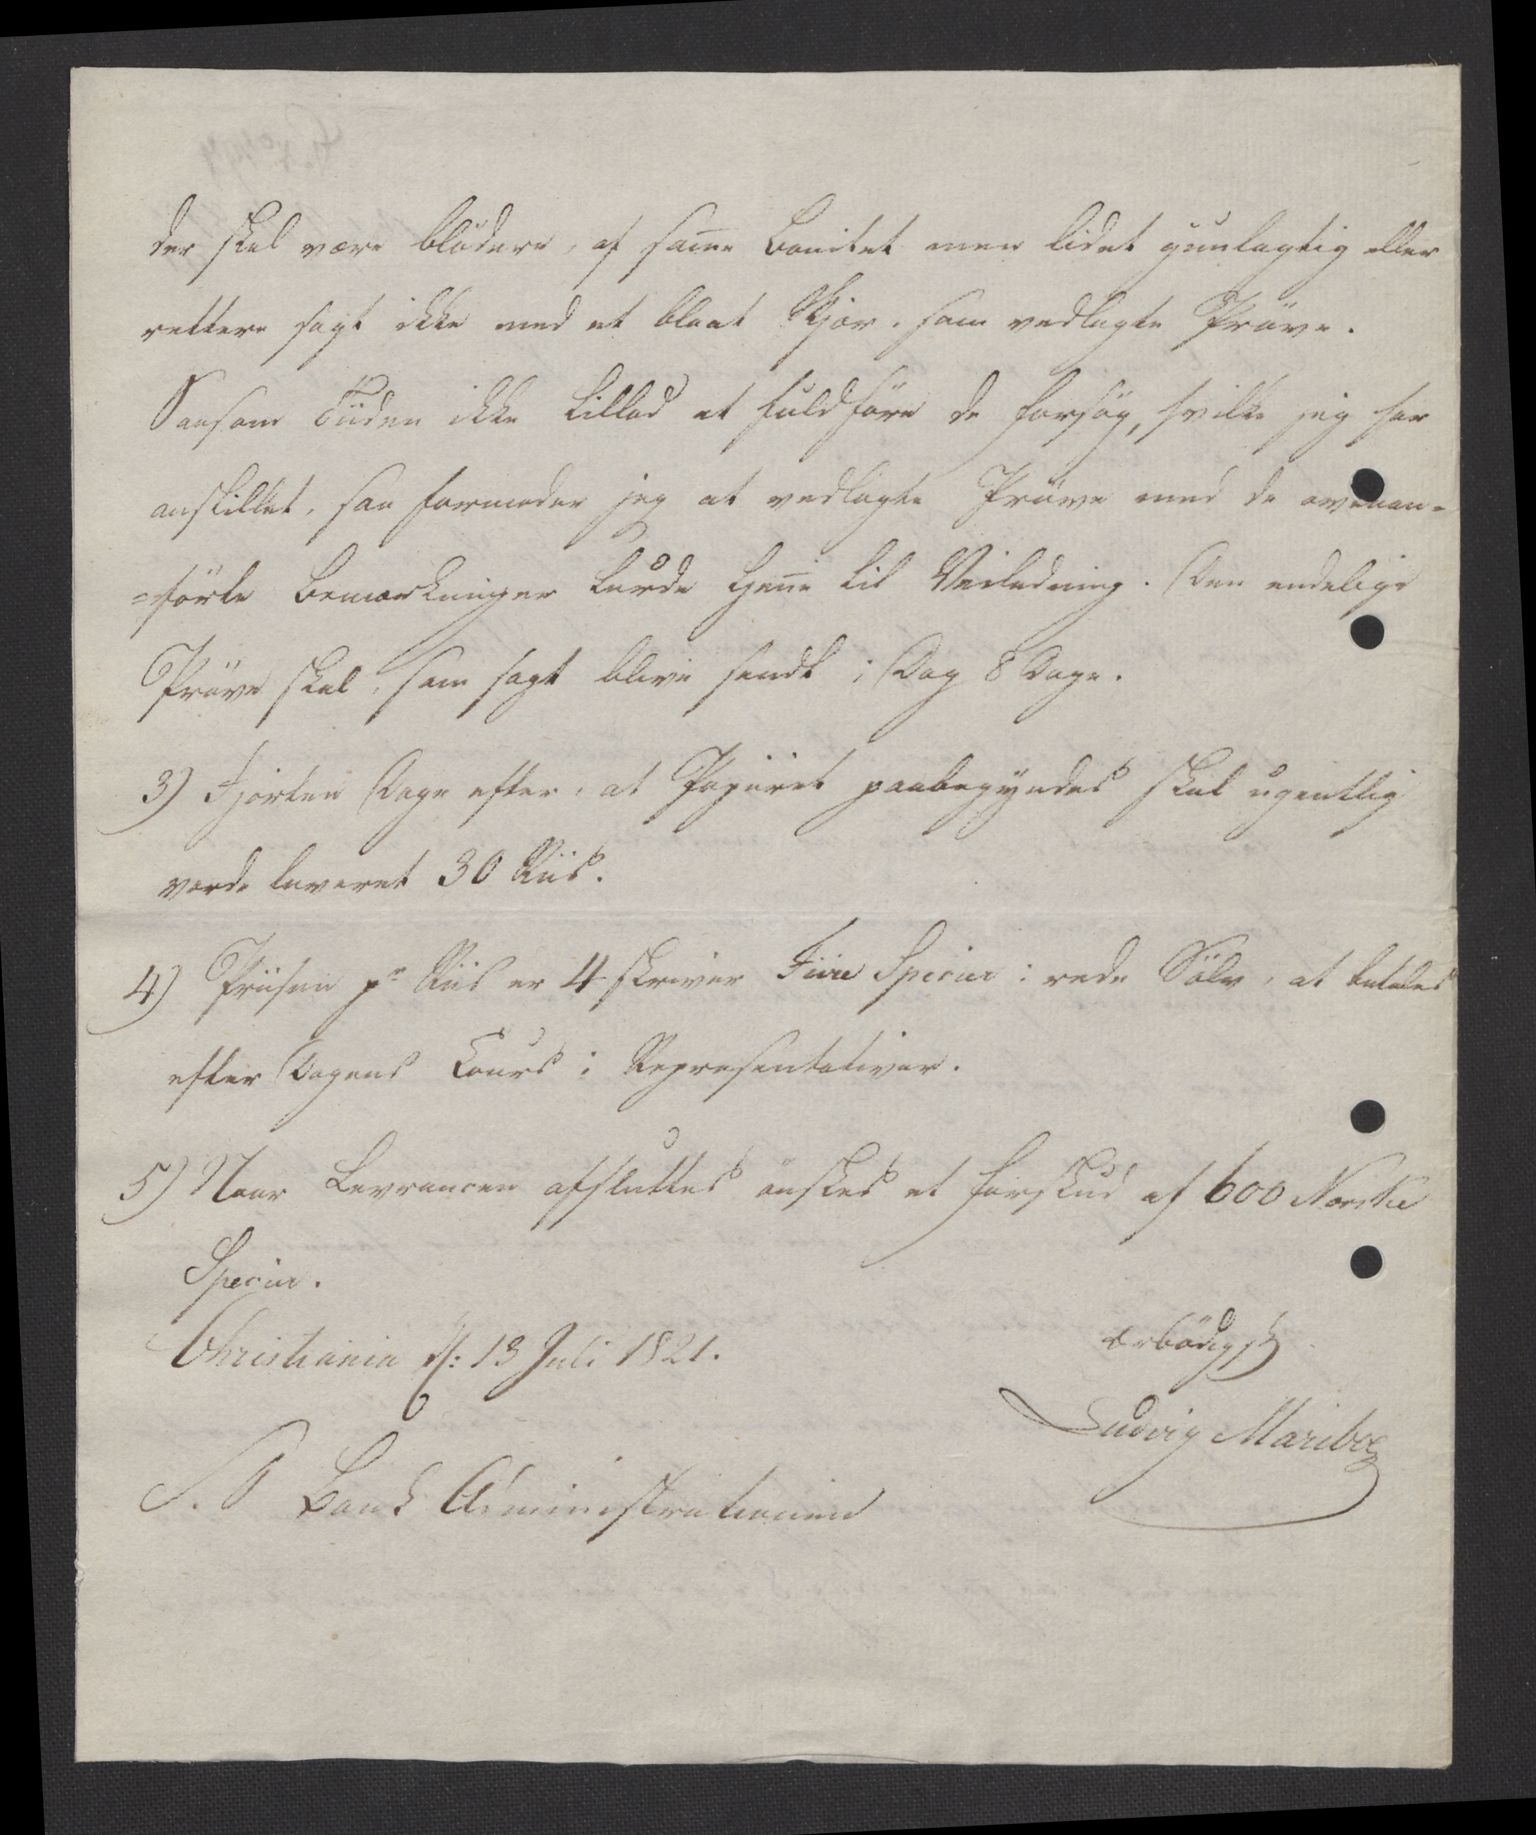 der skal være blödere, af samme Bonitet men lidet guulagtig eller
rettere sagt ikke med et blaat Skjær, som vedlagte Pröve.
Saasom Tiiden ikke tillod at fuldföre de Forsög, hvilke jeg har
anstillet, saa formoder jeg at vedlagte Pröve med de ovenan-
=förte Bemærkninger turde tjene til Veiledning. Den endelige
Pröve skal, som sagt blive sendt i Dag 8 Dage.
3) Fjorten Dage efter, at Papiret paabegyndes skal ugentlig
vorde leveret 30 Riis.
4) Priisen pr Riis er 4 skriver Fiire Specier i rede Sölv, at betales
efter Dagens Cours i Representativer.
5) Naar Levrancen afsluttes önskes et Forskud af 600 Norske
Specier.
Christiania d: 13 Juli 1821.
Ærbödigst
Ludvig Mariboe
S. T. Bank Administrationen